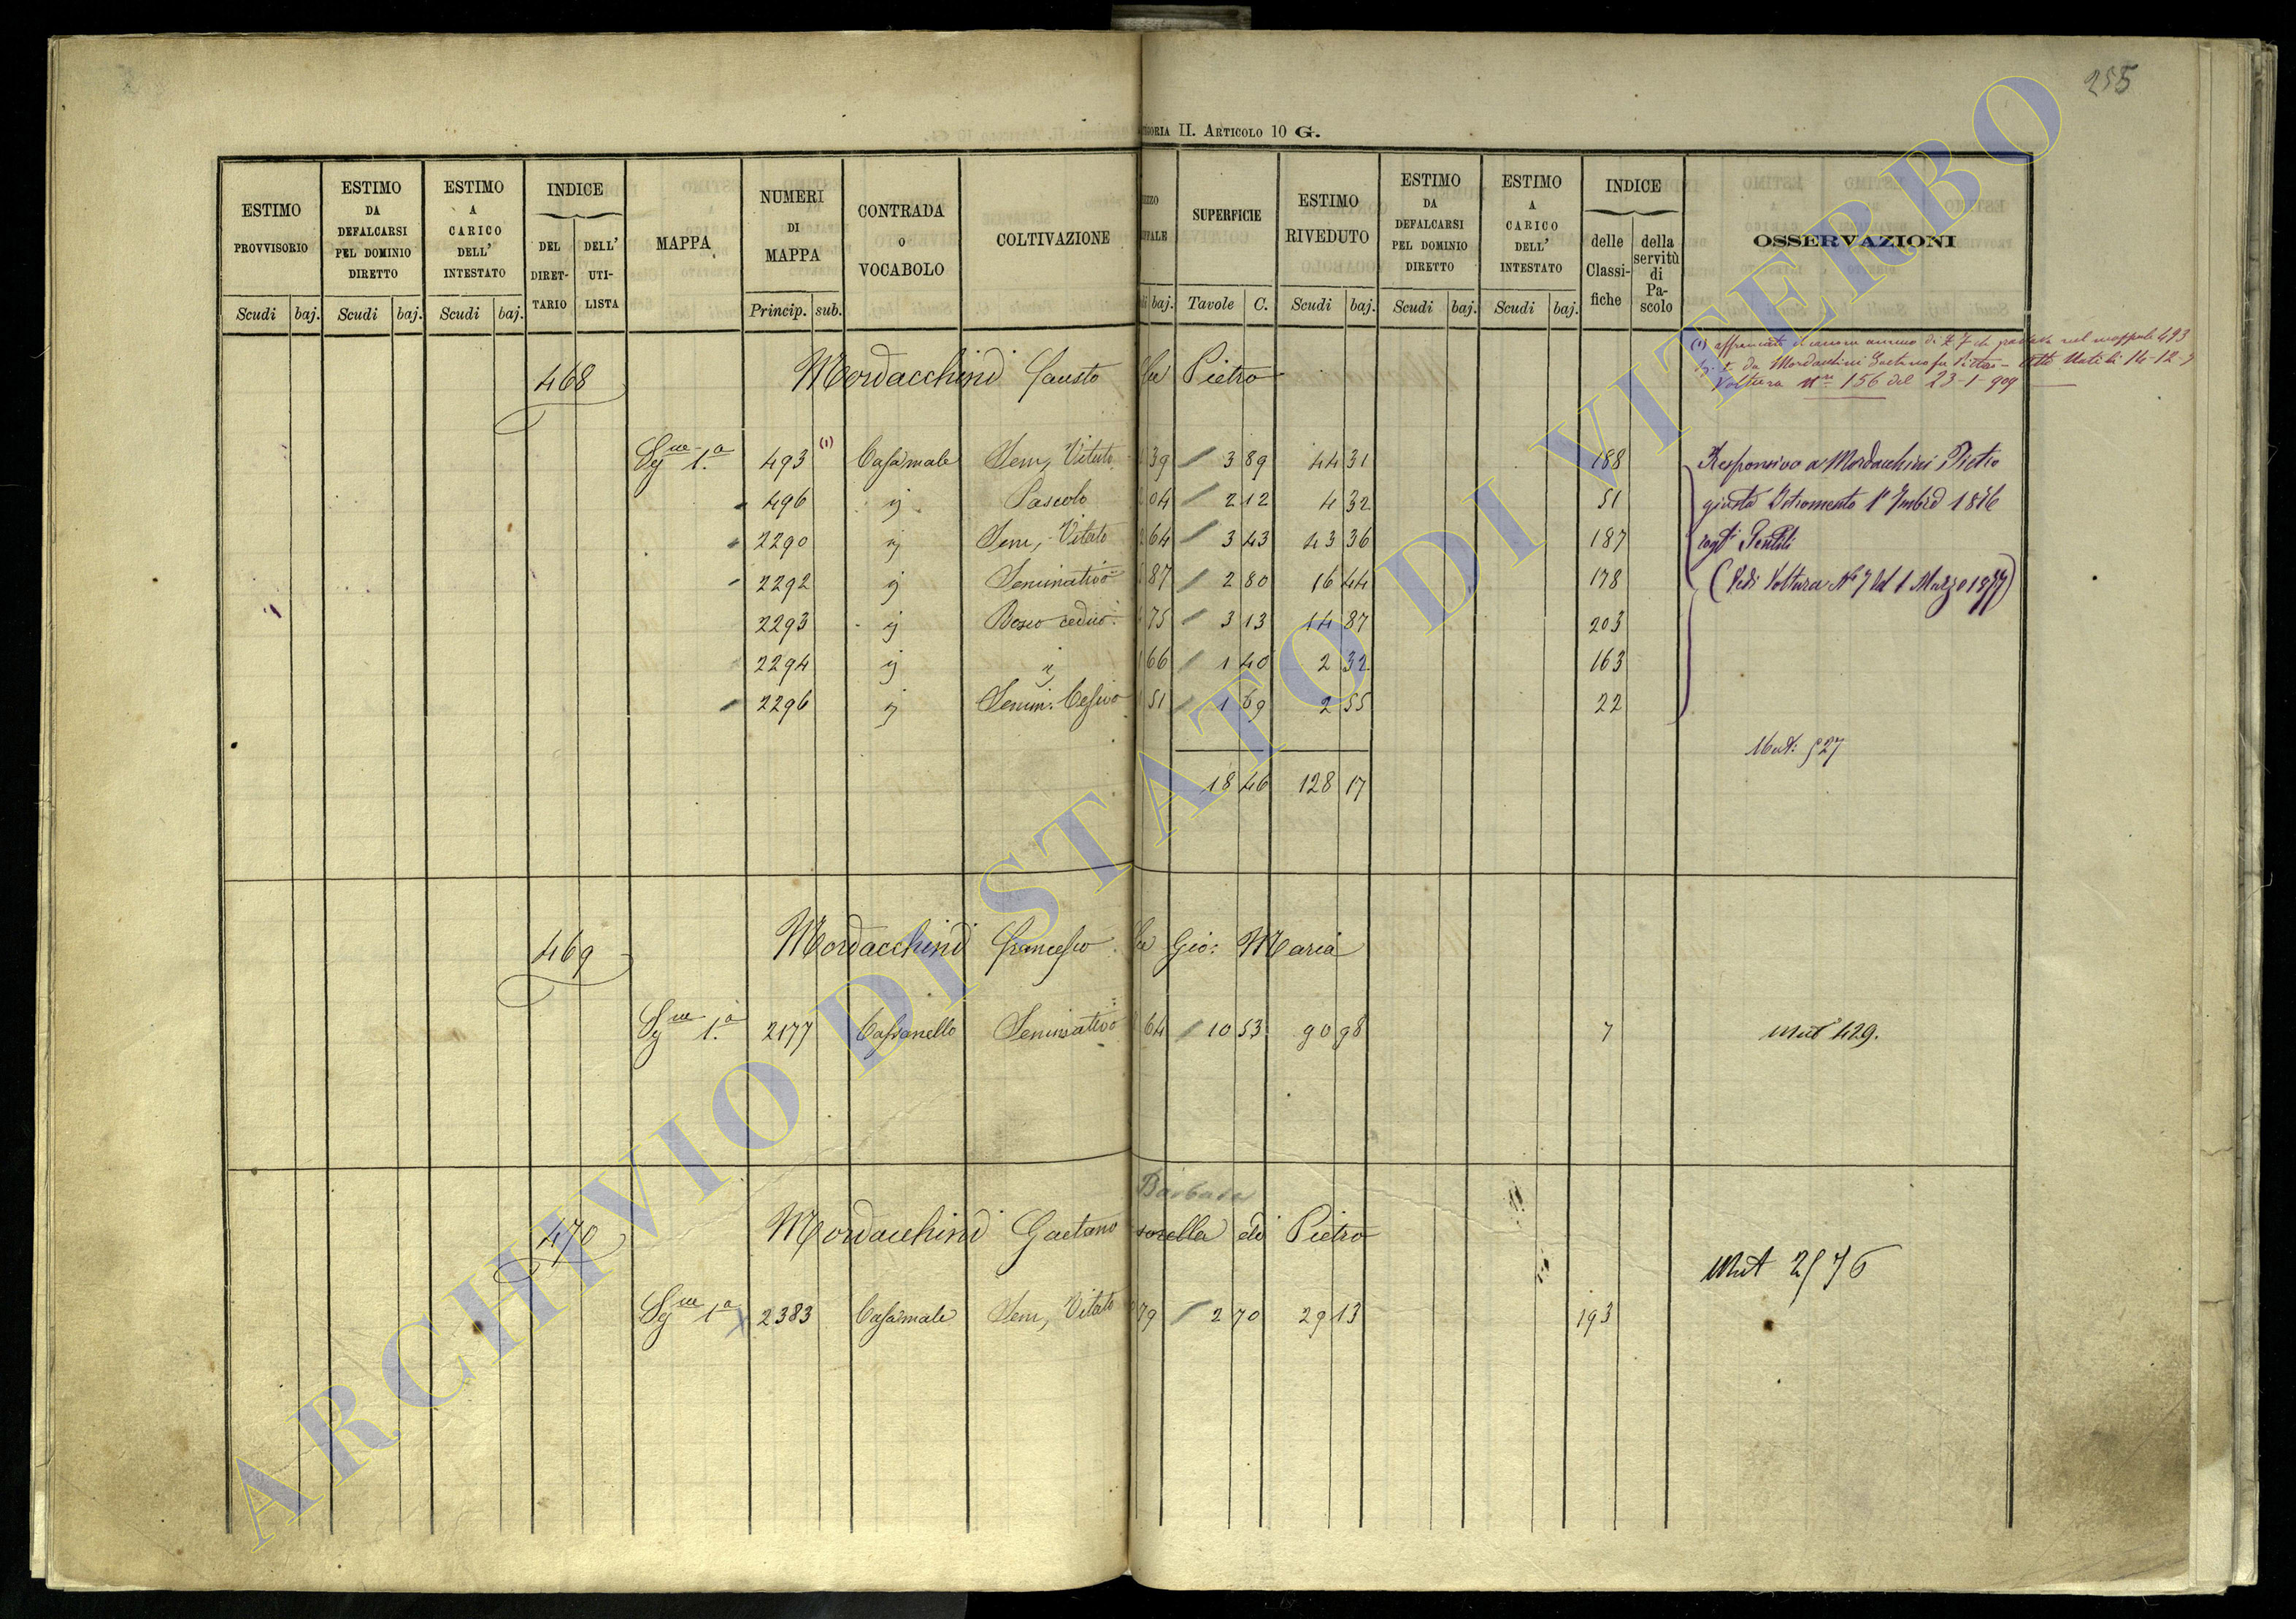 255
II. ARTICOLO 10 G.
ESTIMO PROVVISORIO
ESTIMO DA DEFALCARSI PEL DOMINIO DIRETTO
ESTIMO A CARICO DELL' INTESTATO
INDICE
DEL DIRET-TARIO
DELL' UTI-LISTA
MAPPA
NUMERI DI MAPPA
CONTRADA O VOCABOLO
COLTIVAZIONE
SUPERFICIE
ESTIMO RIVEDUTO
ESTIMO DA DEFALCARSI PEL DOMINIO DIRETTO
ESTIMO A CARICO DELL' INTESTATO
INDICE
delle Classi-fiche
della servitù di Pa-scolo
OSSERVAZIONI
Scudi baj. Scudi baj. Scudi baj. Princip. sub. baj. Tavole C. Scudi baj. Scudi baj. Scudi baj.
(1) affrancato il canone annuo di £ 7 che gravava nel mappale 493
da Mordacchini Gaetano fu Pietro - 16-12-
Voltura n.ro 156 del 23-1-909
468 Mordacchini Fausto fu Pietro
Sez.ne 1.a 493 (1) Casamale Sem, Vitato 39 3 89 44 31 188 Responsivo a Mordacchini Pietro
496 ij Pascolo 04 2 12 4 32 51 giusta Istromento 1876
2290 ij Sem, Vitato 64 3 43 43 36 187
2292 ij Seminativo 87 2 80 16 44 178 (Vedi Voltura N.° 7 del 1 Marzo 1877)
2293 ij Bosco ceduo 75 3 13 14 87 203
2294 ij ij 66 1 40 2 32 163
2296 ij Semin: Cesivo 51 1 69 2 55 22
Mut: 527
18 46 128 17
469 Mordacchini Francesco fu Gio: Maria
Sez.ne 1.a 2177 Cassanello Seminativo 64 10 53 90 98 7 Mut 429.
Barbara
470 Mordacchini Gaetano sorella di Pietro
Mut 2576
Sez.ne 1.a 2383 Casamale Sem, Vitato 79 2 70 29 13 193
ARCHIVIO DI STATO DI VITERBO